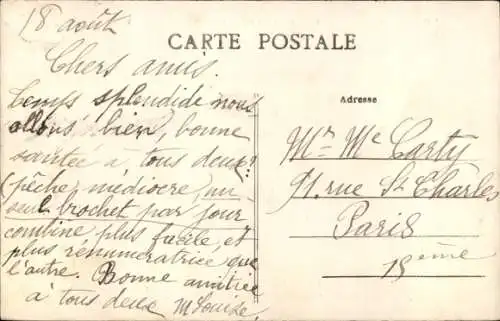 18 août
CARTE POSTALE
Chers amis.
Temps splendide nous
allons bien, bonne
santée à tous deux:
(pêche médiocre) un
seul brochet par jour
combine plus facile, et
plus rénumératrice que
l'autre. Bonne amitiée
à tous deux M Louise.
Adresse
Mr Mc Carty
91. rue St Charles
Paris
15ème